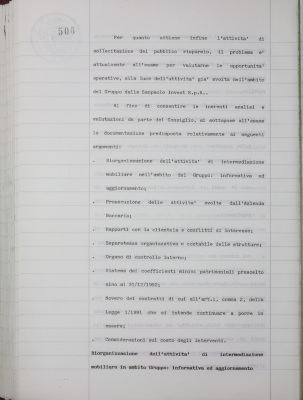 508
Per quanto attiene infine l'attivita' di
sollecitazione del pubblico risparmio, il problema e'
attualmente all'esame per valutarne le opportunita'
operative, alla luce dell'attivita' gia' svolta nell'ambito
del Gruppo dalla Sanpaolo Invest S.p.A..
Al fine di consentire le inerenti analisi e
valutazioni da parte del Consiglio, si sottopone all'esame
la documentazione predisposta relativamente ai seguenti
argomenti:
. Riorganizzazione dell'attivita' di intermediazione
mobiliare nell'ambito del Gruppo: informativa ed
aggiornamento;
. Prosecuzione delle attivita' svolte dall'Azienda
Bancaria;
. Rapporti con la clientela e conflitti di interesse;
. Separatezza organizzativa e contabile delle strutture;
. Organo di controllo interno;
. Sistema dei coefficienti minimi patrimoniali prescelto
sino al 31/12/1992;
. Novero dei contratti di cui all'art.1, comma 2, della
Legge 1/1991 che si intende continuare a porre in
essere;
. Considerazioni sul costo degli interventi.
Riorganizzazione dell'attivita' di intermediazione
mobiliare in ambito Gruppo: informativa ed aggiornamento